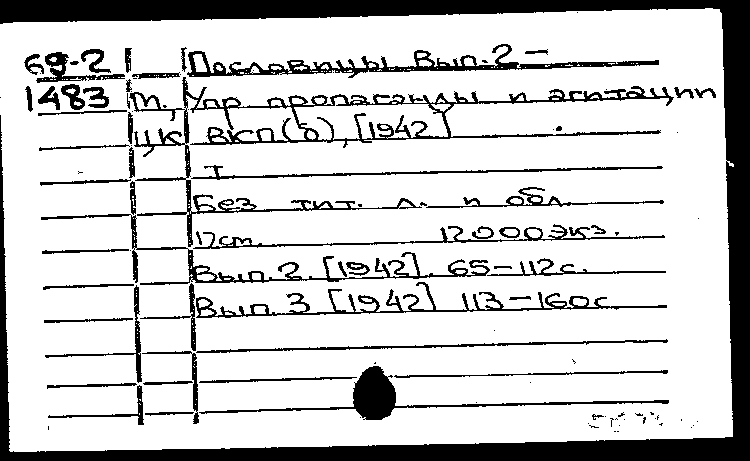 69-2 Пословицы. Вып. 2 –
1483 М., Упр. пропаганды и агитации
ЦК ВКП(б), [1942]
т.
Без тит. л. и обл.
12000 экз.
Вып. 2. [1942]. 65–112 с.
Вып. 3 [1942] 113–160 с